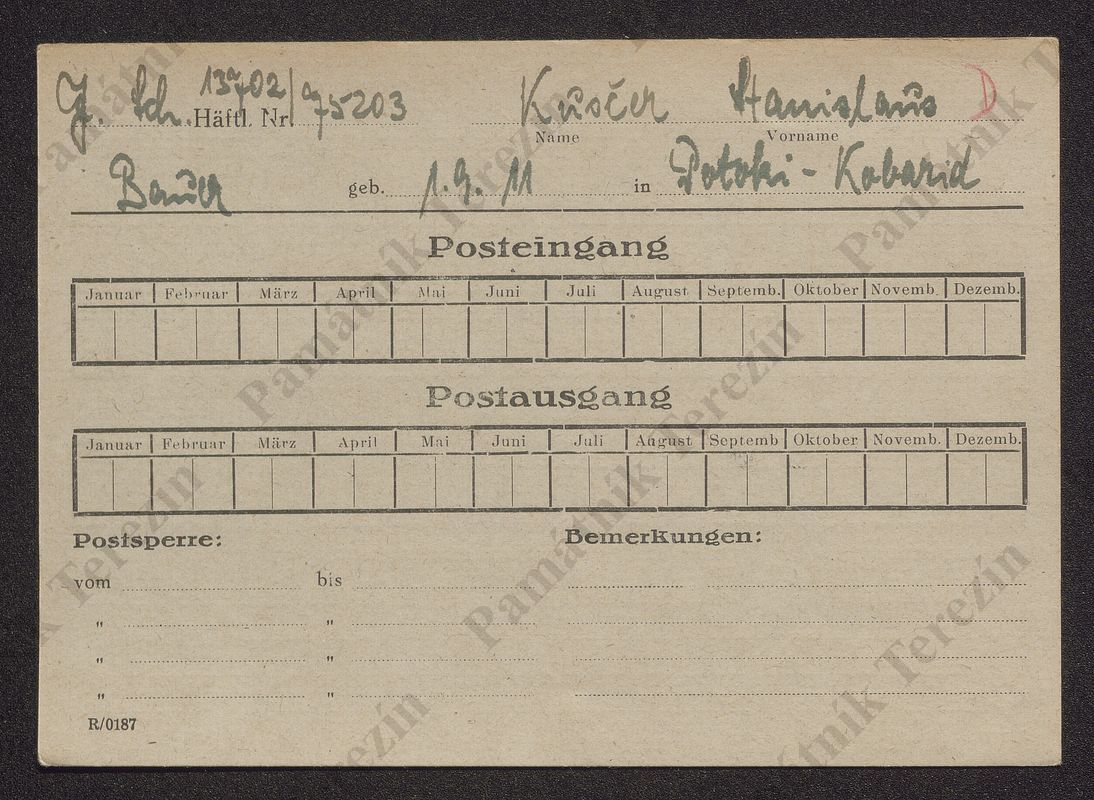 J. Sch. Häftl. Nr. 13702/75203 Kusčer Stanislaus D
Name Vorname
Bauer geb. 1.9.11 in Potoki - Kobarid
Posteingang
Januar Februar März April Mai Juni Juli August Septemb. Oktober Novemb. Dezemb.
Postausgang
Januar Februar März April Mai Juni Juli August Septemb Oktober Novemb. Dezemb.
Postsperre: Bemerkungen:
vom bis
" "
" "
" "
R/0187
Památník Terezín